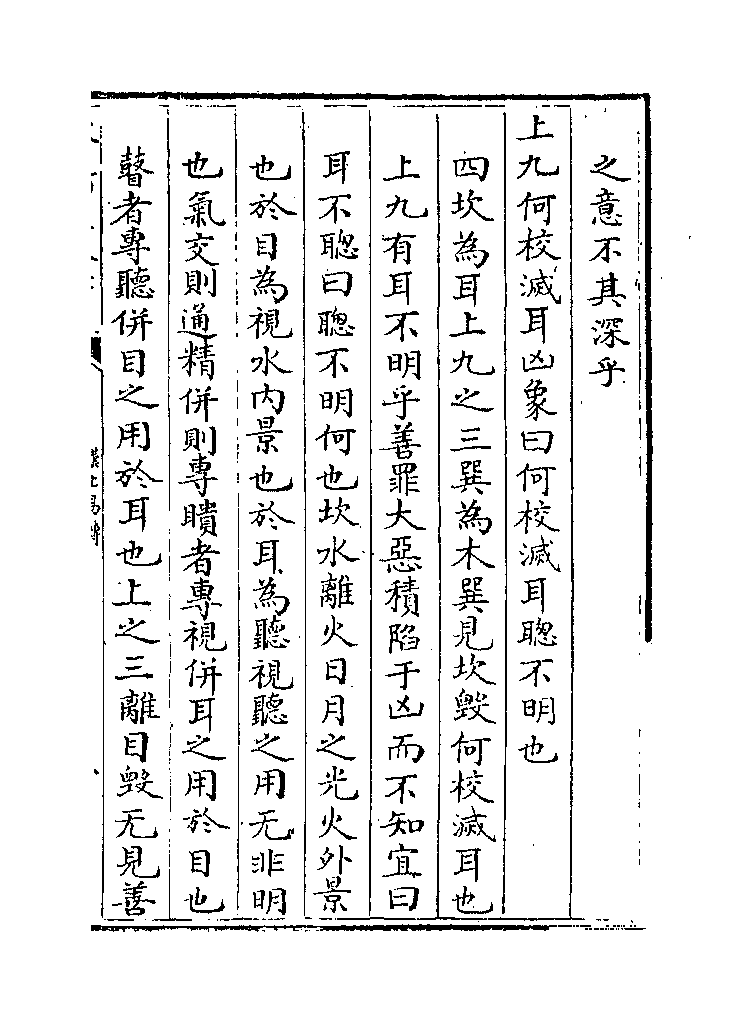 之意不其深乎
上九何校滅耳凶象曰何校滅耳聰不明也
四坎為耳上九之三巽為木巽見坎毀何校滅耳也
上九有耳不明乎善罪大惡積陷于凶而不知宜曰
耳不聰曰聰不明何也坎水離火日月之光火外景
也於目為視水内景也於耳為聽視聽之用无非明
也氣交則通精併則專瞶者專視併耳之用於目也
瞽者專聽併目之用於耳也上之三離目毀无見善
漢上易傳